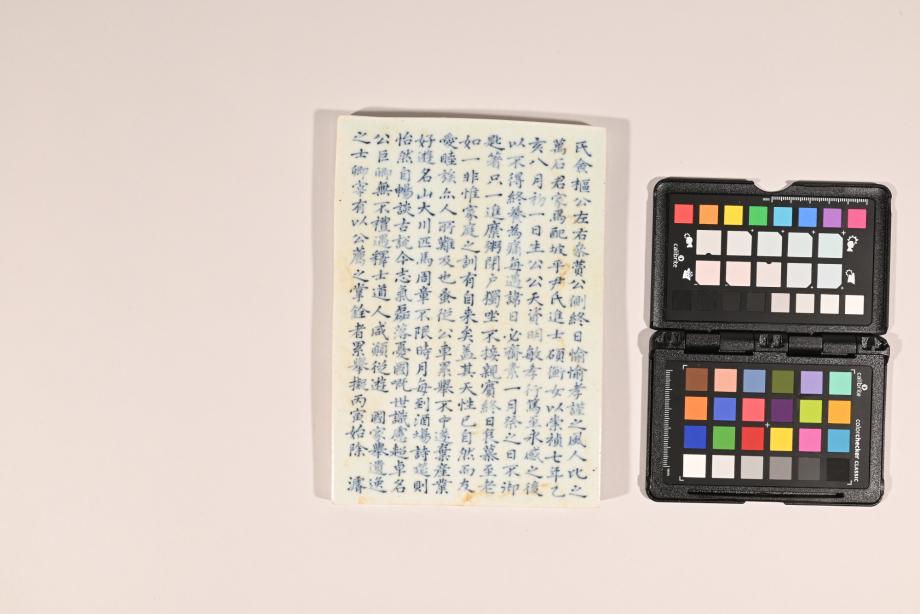 氏僉樞公左右參贊公側終日愉愉孝謹之風人比之
萬石君家焉配坡平尹氏進士碩衡女以崇禎七年乙
亥八月初一日生公公天資明敏孝行篤至永感之後
以不得終養為痛每遇諱日必齊素一月祭之日不御
匙箸只一進糜粥閉戶獨坐不接親賓終日隻慕至老
如一非惟家庭之訓有自来矣盖其天性已自然而友
愛睦族亦人所難及也蚤従公車累舉不中遂棄産業
好遊名山大川匹馬周章不限時月每到酒場詩筵則
怡然自暢談古説今志氣磊落憂國嘅世識慮超卓名
公巨卿無不禮遇釋士道人咸願従遊 國家舉遺逸
之士卿宰有以公薦之掌銓者累舉擬丙寅始除 濬
calibrite
calibrite
colorchecker CLASSIC